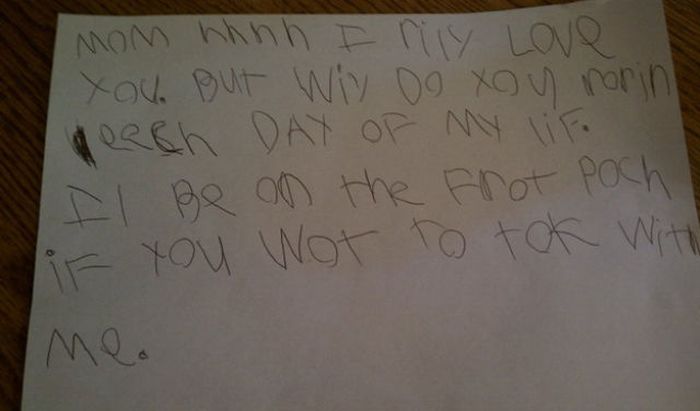 MOM hhhh I rily LOVE
YOU. BUT WiY DO YOU rorin
eech DAY OF MY liF.
Il Be on the Frot Poch
iF YOU WOT TO tOK With
Me.